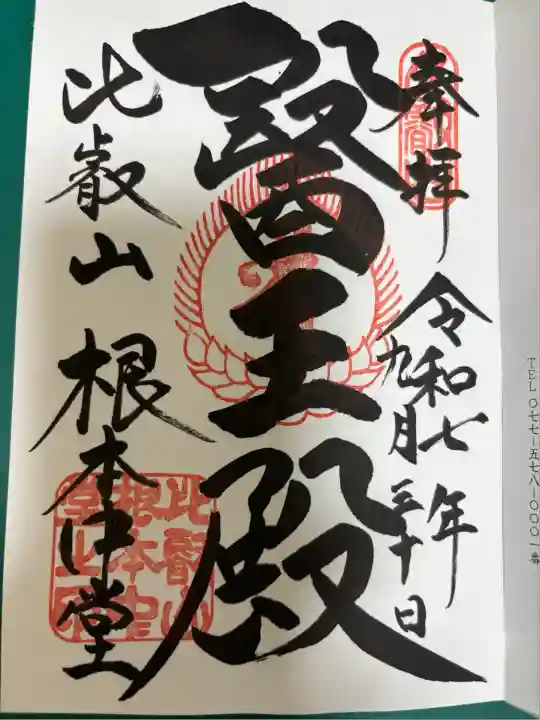 奉拝
令和七年
九月三十日
醫王殿
比叡山 根本中堂
比叡山根本中堂之印
TEL〇七七-五七八-〇〇〇一番